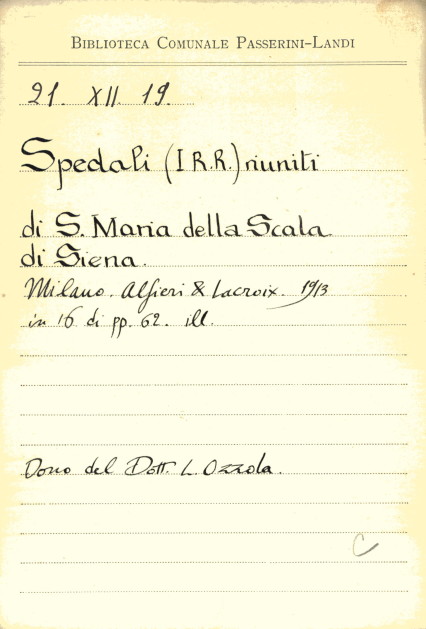 BIBLIOTECA COMUNALE PASSERINI-LANDI
21. XII. 19.
Spedali (I R.R.) riuniti
di S. Maria della Scala
di Siena.
Milano. Alfieri & Lacroix. 1913
in 16 di pp. 62. ill.
Dono del Dott. L. Ozzola.
C